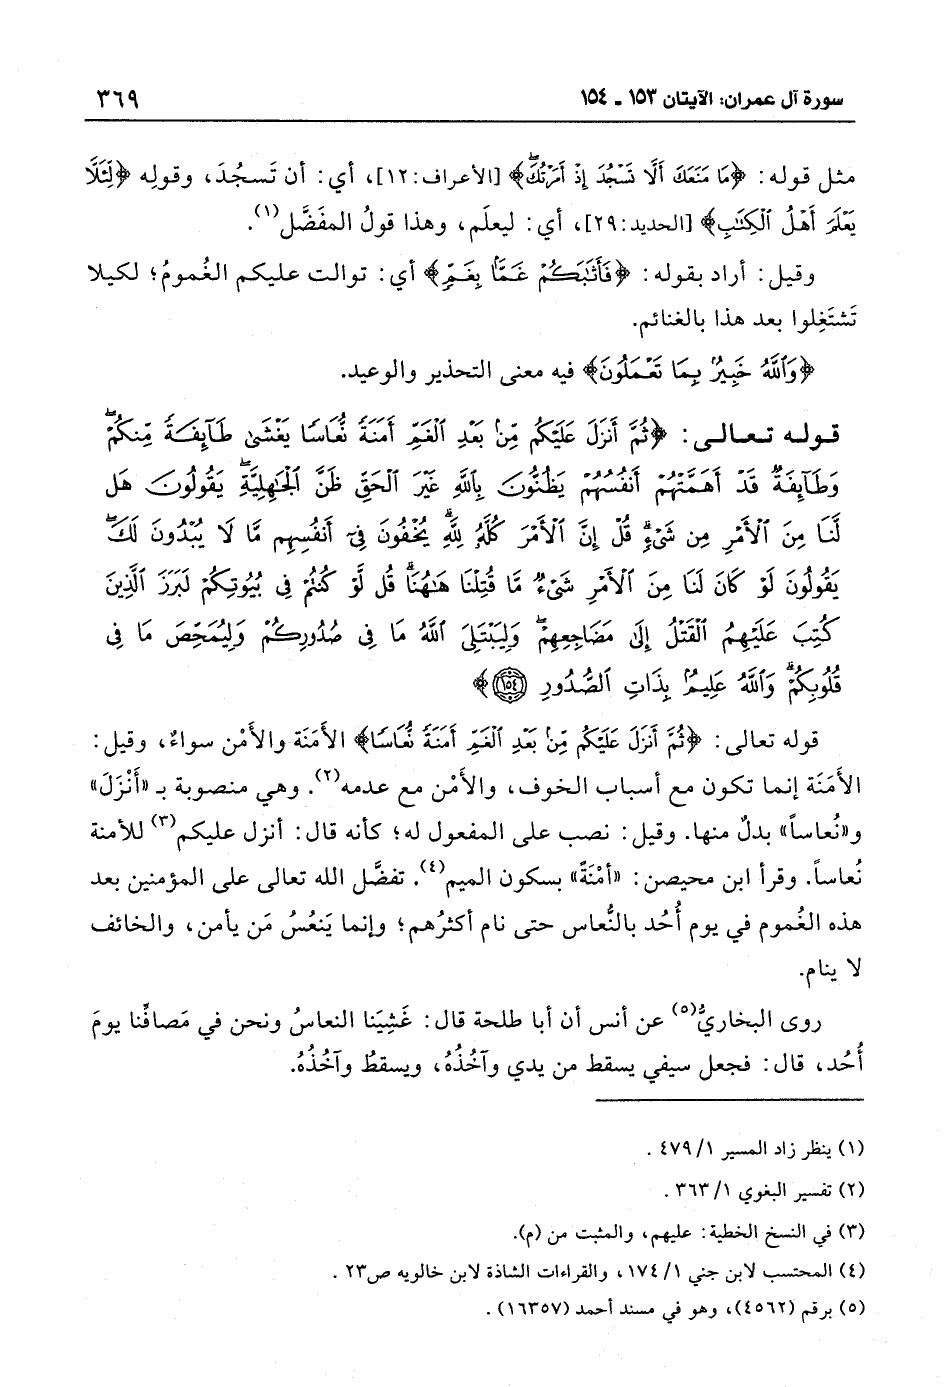 سورة آل عمران: الآيتان ١٥٣ - ١٥٤
٣٦٩
مثل قوله: ﴿مَا مَنَعَكَ أَلَّا تَسْجُدَ إِذْ أَمَرْتُكَ﴾ [الأعراف:١٢]، أي: أن تَسجُدَ، وقولِه ﴿لِئَلَّا
يَعْلَمَ أَهْلُ الْكِتَابِ﴾ [الحديد:٢٩]، أي: ليعلَم، وهذا قولُ المفَضَّل(١).
وقيل: أراد بقوله: ﴿فَأَثَابَكُمْ غَمًّا بِغَمٍّ﴾ أي: توالت عليكم الغُمومُ؛ لكيلا
تَشتَغِلوا بعد هذا بالغنائم.
﴿وَاللَّهُ خَبِيرٌ بِمَا تَعْمَلُونَ﴾ فيه معنى التحذير والوعيد.
قوله تعالى: ﴿ثُمَّ أَنزَلَ عَلَيْكُم مِّنۢ بَعْدِ الْغَمِّ أَمَنَةً نُّعَاسًا يَغْشَىٰ طَآئِفَةً مِّنكُمْ ۖ
وَطَآئِفَةٌ قَدْ أَهَمَّتْهُمْ أَنفُسُهُمْ يَظُنُّونَ بِاللَّهِ غَيْرَ الْحَقِّ ظَنَّ الْجَاهِلِيَّةِ ۖ يَقُولُونَ هَل
لَّنَا مِنَ الْأَمْرِ مِن شَىْءٍ ۗ قُلْ إِنَّ الْأَمْرَ كُلَّهُ لِلَّهِ ۗ يُخْفُونَ فِىٓ أَنفُسِهِم مَّا لَا يُبْدُونَ لَكَ ۖ
يَقُولُونَ لَوْ كَانَ لَنَا مِنَ الْأَمْرِ شَىْءٌ مَّا قُتِلْنَا هَاهُنَا ۗ قُل لَّوْ كُنتُمْ فِى بُيُوتِكُمْ لَبَرَزَ الَّذِينَ
كُتِبَ عَلَيْهِمُ الْقَتْلُ إِلَىٰ مَضَاجِعِهِمْ ۖ وَلِيَبْتَلِىَ اللَّهُ مَا فِى صُدُورِكُمْ وَلِيُمَحِّصَ مَا فِى
قُلُوبِكُمْ ۗ وَاللَّهُ عَلِيمٌۢ بِذَاتِ الصُّدُورِ ۝١٥٤﴾
قوله تعالى: ﴿ثُمَّ أَنزَلَ عَلَيْكُم مِّنۢ بَعْدِ الْغَمِّ أَمَنَةً نُّعَاسًا﴾ الأمَنَة والأمْن سواءٌ، وقيل:
الأمَنَة إنما تكون مع أسباب الخوف، والأمْن مع عدمه(٢). وهي منصوبة بـ «أَنْزَلَ»
و«نُعاساً» بدلٌ منها. وقيل: نصب على المفعول له؛ كأنه قال: أنزل عليكم(٣) للأمنة
نُعاساً. وقرأ ابن محيصن: «أمْنَةً» بسكون الميم(٤). تفضَّل الله تعالى على المؤمنين بعد
هذه الغُموم في يوم أُحُد بالنُّعاس حتى نام أكثرُهم؛ وإنما يَنعُسُ مَن يأمن، والخائف
لا ينام.
روى البخاريُّ(٥) عن أنس أن أبا طلحة قال: غَشِيَنا النعاسُ ونحن في مَصافِّنا يومَ
أُحُد، قال: فجعل سيفي يسقط من يدي وآخُذُهُ، ويسقطُ وآخُذُهُ.
(١) ينظر زاد المسير ١/ ٤٧٩ .
(٢) تفسير البغوي ١/ ٣٦٣ .
(٣) في النسخ الخطية: عليهم، والمثبت من (م).
(٤) المحتسب لابن جني ١/ ١٧٤، والقراءات الشاذة لابن خالويه ص٢٣ .
(٥) برقم (٤٥٦٢)، وهو في مسند أحمد (١٦٣٥٧) .